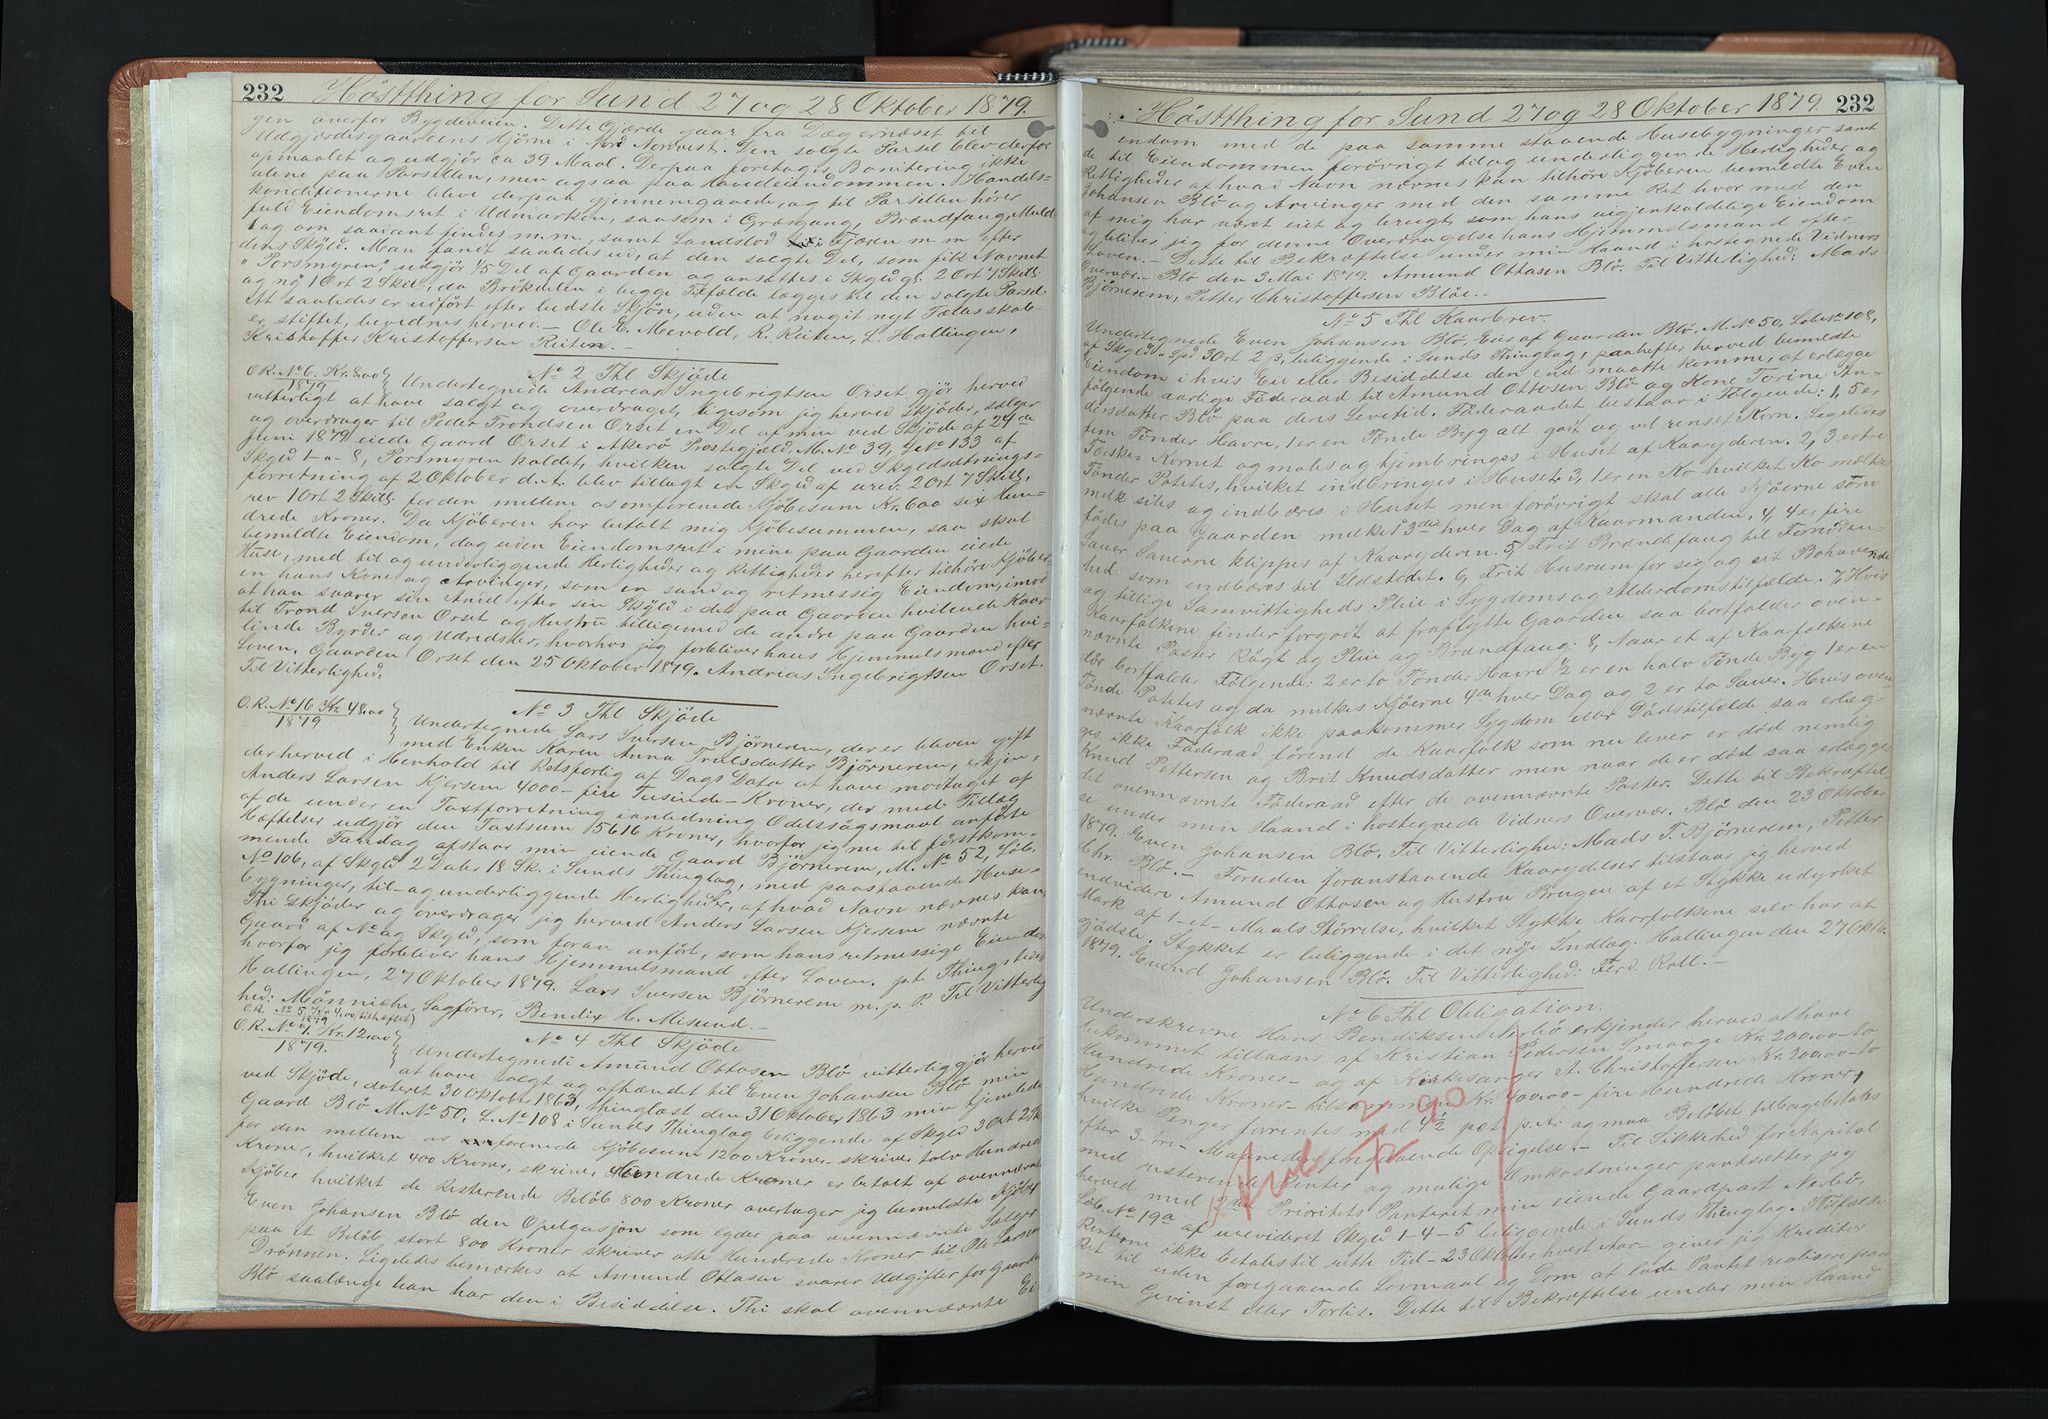 232 Høstthing for Sund 27 og 28 Oktober 1879.
gen overfor Bygdeveien. Dette Gjærde gaar fra Dægernæset til
Udgjærdesgaardens Hjörne i Nord Nordvest. Den solgte Parsel blev derfor
opmaalet og udgjör ca 39 Maal. Derpaa foretoges Bonitering ikke
alene paa Parsellen, men ogsaa paa Hovedeiendommen. Handels-
konditionerne bleve derpaa gjennemgaaede, og til Parsellen hörer
fuld Eiendomsret i Udmarken, saasom i Græsgang, Brændfang, Muld
tag om saadant findes m.m., samt Landslod i Fjæren m. m efter
dens Skyld. Man fandt saaledes ud, at den solgte Del, som fik Navnet
"Porsmyren", udgjör 1/5 Del af Gaarden og ansattes i Skyld gl. 2 Ort 7 Skill.
og ny 1 Ort 2 Skill, da Brökdelen i begge Tilfælde lægges til den solgte Parsel
At saaledes er udfört efter bedste Skjön, uden at nogit nyt Fællesskab
er stiftet, bevidnes herved.- Ole E. Mevold, R. Reiten, L. Hollingen,
Kristoffer Kristoffersen Reiten.-
No 2 Thl Skjöde
O.R. No 6. Kr. 8.00
1879
Undertegnede Andreas Ingebrigtsen Orset gjör herved
vitterligt at have solgt og overdraget, ligesom jeg herved skjöder, sælger
og overdrager til Peder Trondsen Orset en Del af min ved Skjöde af 24de
Juni 1879 eiede Gaard Orset i Akerö Præstegjeld, M. No 39, L No 133 af
Skyld 1-0-8, Porsmyren kaldet, hvilken solgte Del ved Skyldsætnings-
forretning af 2 Oktober d.A. blev tillagt en Skyld af urev. 2 Ort 7 Skill,
rev 1 Ort 2 Skill. for den mellem os omforenede Kjöbesum Kr. 600 sex Hun-
drede Kroner. Da Kjöberen har betalt mig Kjöbesummen, saa skal
bemeldte Eiendom, dog uden Eiendomsret i mine paa Gaarden eiede
Huse, med til og underliggende Herligheder og Rettigheder herefter tilhöre Kjöber-
en hans Kone og Arvinger, som en sand og retmessig Eiendom, imod
at han svarer sin Andel efter sin Skyld i det paa Gaarden hvilende Kaar
til Trond Iversen Orset og Hustru tilligemed de andre paa Gaarden hvi-
lende Byrder og Udredsler, hvorhos jeg forbliver hans Hjemmelsmand efter
Loven. Gaarden Orset den 25 Oktober 1879. Andreas Ingebrigtsen Orset.
Til Vitterlighed:
No 3 Thl Skjöde
O.R. No 16 Kr. 48.00
1879
Undertegnede Lars Iversen Björnerem, der er bleven gift
med Enken Karen Anna Trulsdatter Björnerem, erkjen,
der herved i Henhold til Retsforlig af Dags Dato at have modtaget af
Anders Larsen Kjersem 4000- fire Tusinde- Kroner, der med Tillæg
af de under en Taxtforretning i anledning Odelssögsmaal anförte
Hæftelser udgjör den Taxtsum 15616 Kroner, hvorfor jeg nu til förstkom-
mende Faredag afstaar min eiende Gaard Björnerem, M. No 52, Löb-
No 106, af Skyld 2 Daler 18 Sk. i Sunds Thinglag, med paastaaende Huse-
bygninger, til- og underliggende Herligheder, af hvad Navn nævnes kan,
Thi skjöder og overdrager jeg herved Anders Larsen Kjersem nævnte
Gaard af No og Skyld, som foran anfört, som hans retmessige Eiendom
hvorfor jeg forbliver hans Hjemmelsmand efter Loven. p.t. Thingstedet
Hollingen, 27 Oktober 1879. Lars Iversen Björnerem m. p. P. Til Vitterlig
hed: Mönniche, Sagförer, Bendix H. Misund.-
O.R. No 5, Kr. 4.00, (tilheftet)
1879
O.R. No 7. Kr. 12.00
1879.
No 4 Thl Skjöde
Undertegnede Amund Ottosen Blö vitterliggjör herved
at have solgt og afhændet til Even Johansen Blö min
ved Skjöde, dateret 30 Oktober 1863, thinglæst den 31 Oktober 1863 min hjemlede
Gaard Blö M. No 50, L. No 108 i Sunds Thinglag beliggende af Skyld 3 Ort 2 Sk
for den mellem os Kjöbesum 1200 Kroner- skriver tolv Hundrede
Kroner, hvilket 400 Kroner, skriver 4 Hundrede Kroner er betalt af ovennævnte
Kjöber hvilket de Resterende Belöb 800 Kroner overtager jeg bemeldte Kjöber
Even Johansen Blö den Opelgasjon som lyder paa ovennævnte Sælger
paa et Belöb stort 800 Kroner skriver otte Hundrede Kroner til Ole Larsen
Drönnen. Ligeledes bemærkes at Amund Ottosen svarer Udgifter for Gaarden
Blö saalænge han har den i Besiddelse. Thi skal ovennævnte Ei
Höstthing for Sund 27 og 28 Oktober 1879 232
endom med de paa samme staaende Husebygninger samt
de til Eiendommen forövrigt til og underliggende Herligheder og
Rettigheder af hvad Navn nævnes kan tilhöre Kjöberen bemeldte Even
Johansen Blö og Arvinger med den samme Ret hvor med den
af mig har været eiet og brugt som hans uigjenkaldelige Eiendom
og bliver jeg for denne Overdragelse hans Hjemmelsmand efter
Loven.- Dette til Bekræftelse under min Haand i hostegnede Vidners
Overvær.- Blö den 3 Mai 1879. Amund Ottosen Blö. Til Vitterlighed: Mads
Björnerem, Petter Christoffersen Blöe.-
No 5 Thl Kaarbrev.
Undertegnede Even Johansen Blö, Eier af Gaarden Blö, M. No 50, Löb No 108,
af Skyld- Spd 3 Ort 2 ß, beliggende i Sunds Thinglag, paahefter herved bemeldte
Eiendom i hvis Eie eller Besiddelse den end maatte komme, at erlægge
fölgende aarlige Föderaad til Amund Ottosen Blö og Kone Torine An-
dersdatter Blö paa deres Levetid. Föderaadet bestaar i Fölgende: 1, 5 er
fem Tönder Havre, 1 er en Tönde Byg alt godt og vel renset Korn. Ligeledes
Tærskes Kornet og males og hjembringes i Huset af Kaaryderen. 2, 3 er tre
Tönder Potetes, hvilket indbringes i Huset. 3, 1 er en Ko hvilket Ko mælkes
melk siles og indbæres i Huset men forövrigt skal alle Kjöerne som
födes paa Gaarden melkes 3die hver Dag af Kaarmanden, 4, 4 er fire
Sauer Sauerne klippes af Kaaryderen. 5, Frit Brændefang til Fornöden-
hed som indbæres til Ildstedet. 6, Frit Husrum for sig og sit Bohavende
og tillige Samvittigheds Pleie i Sygdoms og Alderdomstilfælde. 7, Hvis
Kaarfolkene finder forgodt at fraflytte Gaarden saa bortfalder oven-
nævnte Poster Rögt og Pleie og Brændfang: 8, Naar et af Kaarfolkene
dör bortfalder Fölgende: 2 er to Tönder Havre 1/2 er en halv Tönde Byg 1 er en
Tönde Potetes og da mælkes Kjöerne 4de hver Dag og 2 er to Sauer. Hvis oven-
nævnte Kaarfolk ikke paakommer Sygdom eller Dödstilfælde saa erlæg-
ges ikke Föderaad förend de Kaarfolk som nu lever er död nemlig
Knud Pettersen og Brit Knudsdatter men naar de er död saa erlægges
det ovennævnte Föderaad efter de ovennævnte Poster. Dette til Bekræftel-
se under min Haand i hostegnede Vidners Overvær. Blö den 23 Oktober
1879. Even Johansen Blö. Til Vitterlighed: Mads T. Björnerem, Petter
Chr. Blö.- Foruden foranstaaende Kaarydelser tilstaar jeg herved
endvidere Amund Ottosen og Hustru Brugen af et Stykke udyrket
Mark af 1-et- Maals Störrelse, hvilket Stykke Kaarfolkene selv har at
gjödsle. Stykket er beliggende i det nöje Indlæg. Hollingen den 27 Oktb.
1879. Evend Johansen Blö. Til Vitterlighed: Ferd. Roll.-
No 6 Thl Obligation.
Underskrevne Hans Bendiksen Nerbö erkjender herved at have
bekommet tillaans af Kristian Pedersen Smaage Kr. 200.00- to
Hundrede Kroner- og af Kirkesanger A. Christoffersen Kr. 200.00- to
Hundrede Kroner- tilsammen Kr. 400.00- fire Hundrede Kroner,
hvilke Penger forrentes med 4 1/2 pct p. A. og maa Belöbet tilbagebetales
efter 3- tre- Maaneders foregaaende Opsigelse.- Til Sikkerhed for Kapital
med resterende Renter og mulige Omkostninger pantsætter jeg
herved med 2den Prioritets Panteret min eiende Gaardpart Nerbö,
Löb. No 19a af urevideret Skyld 1-4-5 beliggende i Sunds Thinglag. Tilfælde
Renterne ikke betales til rette Tid- 23 Oktober hvert Aar- giver jeg Kreditor
Ret til uden foregaaende Lovmaal og Dom at lade Pantet realisere paa
min Gevinst eller Forlis. Dette til Bekræftelse under min Haand